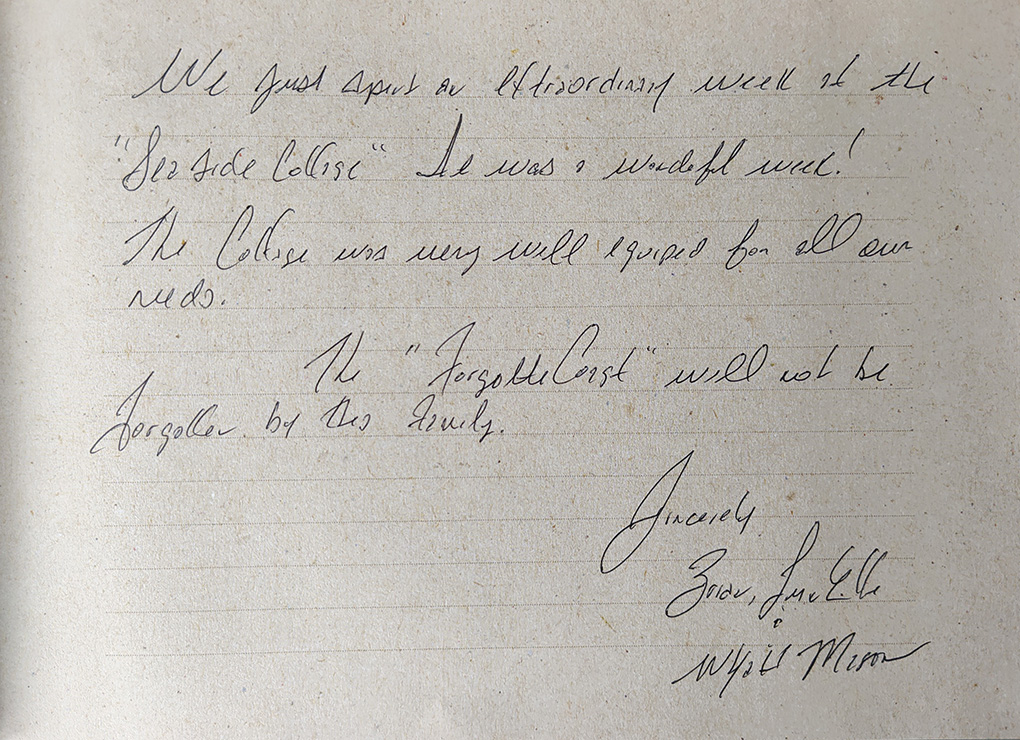 We just spent an extraordinary week at the
"Sea Side Cottage" It was a wondefl week!
The Cottage was very well equiped for all our
needs.
The "Forgotte Coast" will not be
forgotten by this family.
Sincerely
Brian,
Wyatt Mason